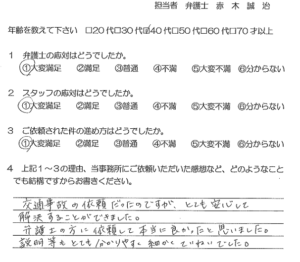 担当者 弁護士 赤木 誠治
年齢を教えて下さい □20代□30代☑40代□50代□60代□70才以上
1 弁護士の応対はどうでしたか。
①大変満足 ②満足 ③普通 ④不満 ⑤大変不満 ⑥分からない
2 スタッフの応対はどうでしたか。
①大変満足 ②満足 ③普通 ④不満 ⑤大変不満 ⑥分からない
3 ご依頼された件の進め方はどうでしたか。
①大変満足 ②満足 ③普通 ④不満 ⑤大変不満 ⑥分からない
4 上記1~3の理由、当事務所にご依頼いただいた感想など、どのようなこと
でも結構ですからお書きください。
交通事故の依頼だったのですが、とても安心して
解決することができました。
弁護士の方に依頼して本当に良かったと思いました。
説明等もとても分かりやすく細かくていねいでした。